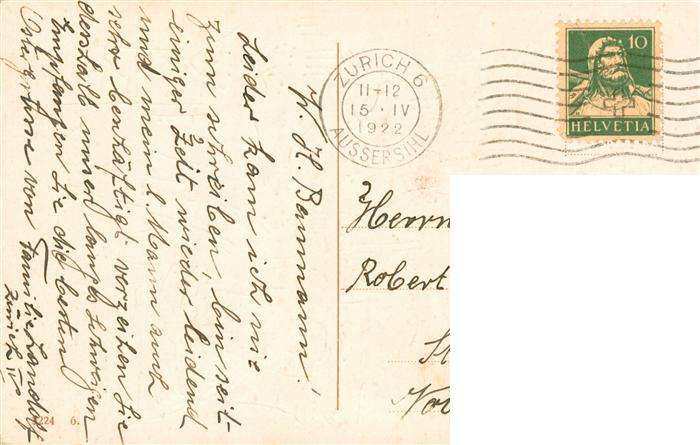 W. H. Baumann!
Leider kam ich nie
zum schreiben, bin seit
einiger Zeit wieder leidend
und mein l. Mann auch
sehr beschäftigt verzeihen Sie
deshalb unser langes schweigen
Empfangen Sie die besten
von Familie Landolf
Zürich IV
ZÜRICH 6
11-12
15·IV
1922
AUSSERSIHL
10
HELVETIA
Herrn
Robert
6.